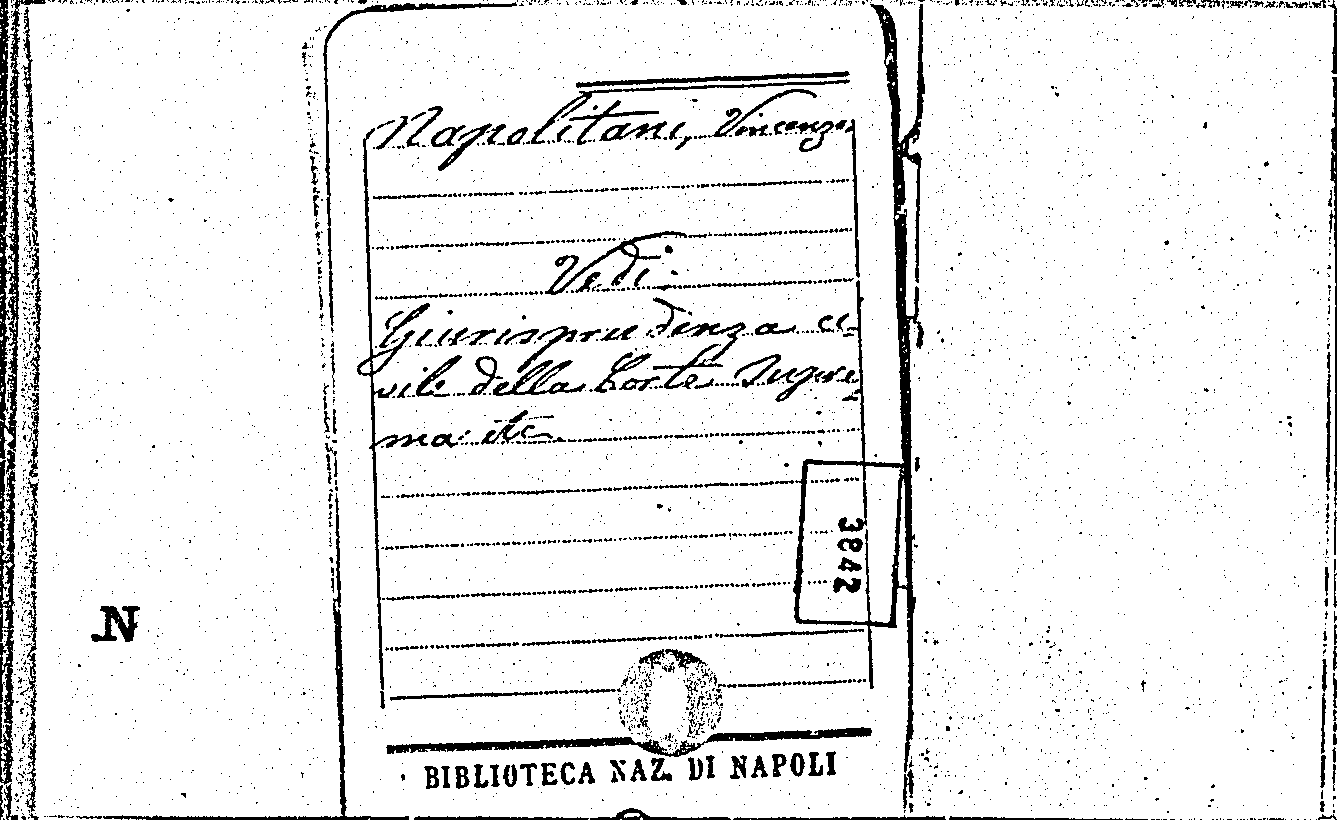 Napolitani, Vincenzo
Vedi:
Giurisprudenza ci-
vile della Corte Supre-
ma etc.
3842
N
BIBLIOTECA NAZ. DI NAPOLI